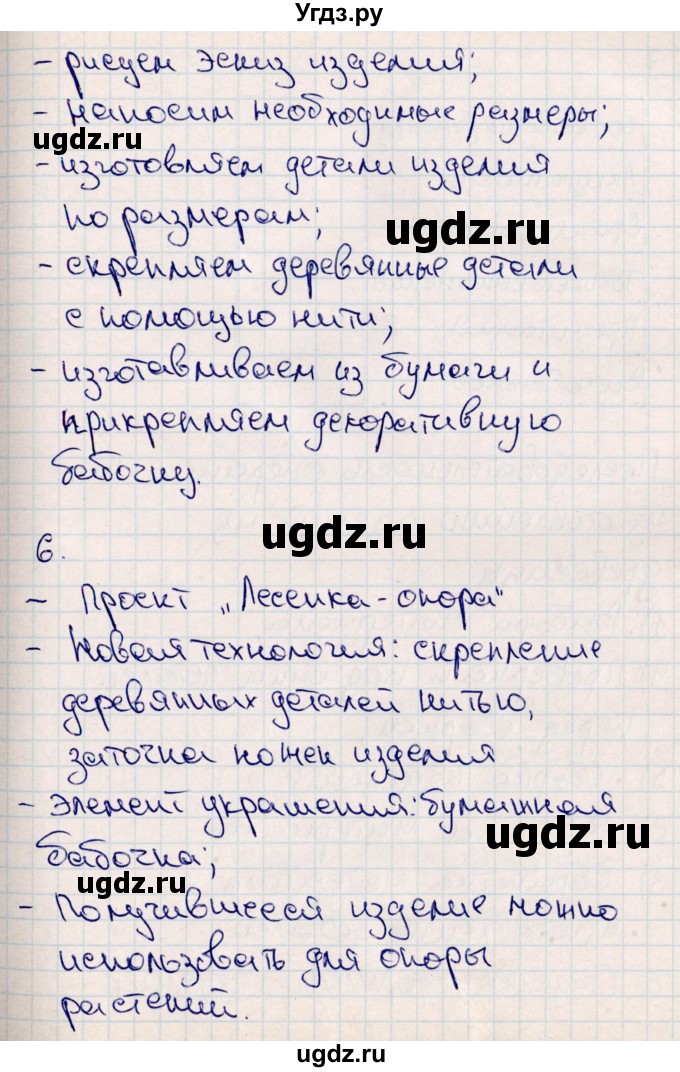 Угдз.ру
- рисуем эскиз изделия;
- наносим необходимые размеры;
ugdz.ru
- изготовляем детали изделия
по размерам;
ugdz.ru
- скрепляем деревянные детали
с помощью нити;
- изготавливаем из бумаги и
прикрепляем декоративную
бабочку.
ugdz.ru
6.
- Проект „Лесенка-опора"
- Новая технология: скрепление
деревянных деталей нитью,
заточка ножек изделия
- Элемент украшения: бумажная
ugdz.ru
бабочка;
ugdz.ru
- Получившееся изделие можно
использовать для опоры
растений.
ugdz.ru